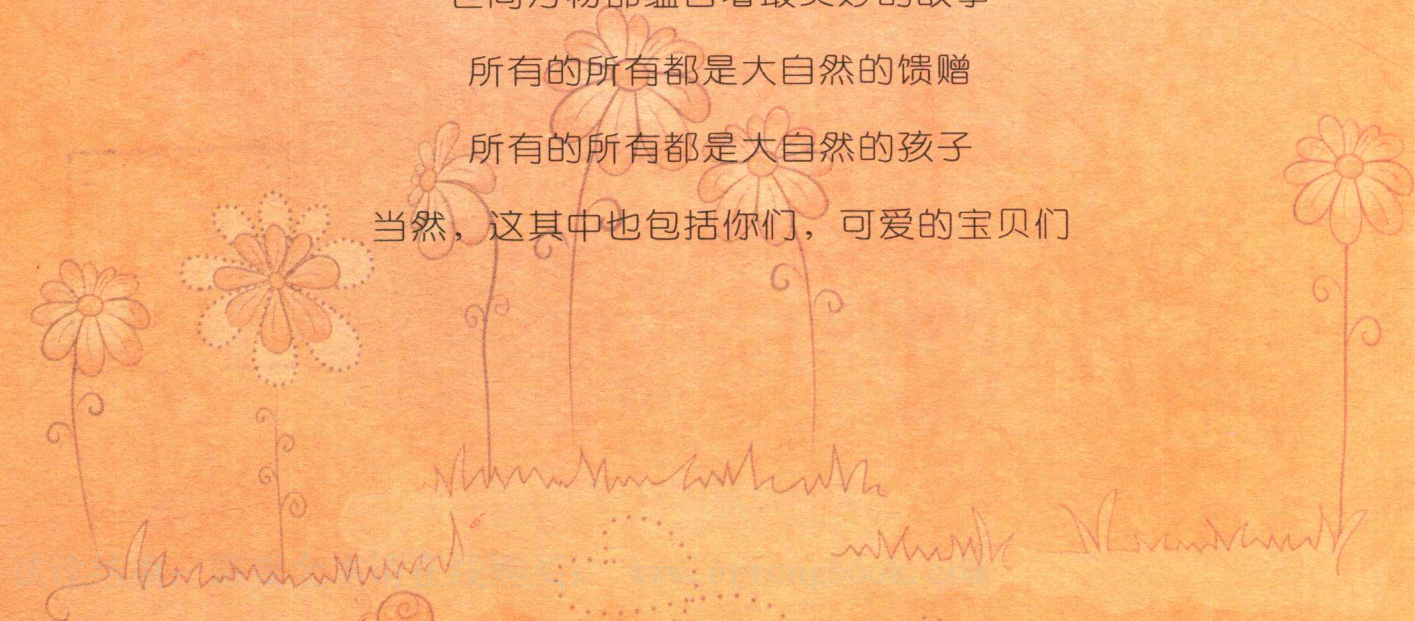 所有的所有都是大自然的馈赠
所有的所有都是大自然的孩子
当然，这其中也包括你们，可爱的宝贝们